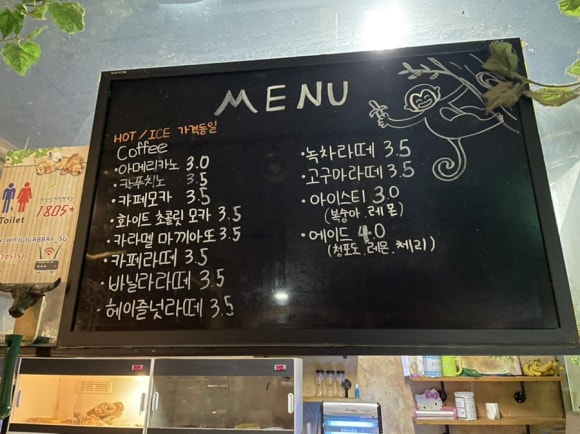 MENU
HOT / ICE 가격동일
Coffee
·아메리카노 3.0
·카푸치노 3.5
·카페모카 3.5
·화이트 초콜릿 모카 3.5
·카라멜 마끼아또 3.5
·카페라떼 3.5
·바닐라라떼 3.5
·헤이즐넛라떼 3.5
·녹차라떼 3.5
·고구마라떼 3.5
·아이스티 3.0
(복숭아. 레몬)
·에이드 4.0
(청포도. 레몬. 체리)
Toilet
1805*